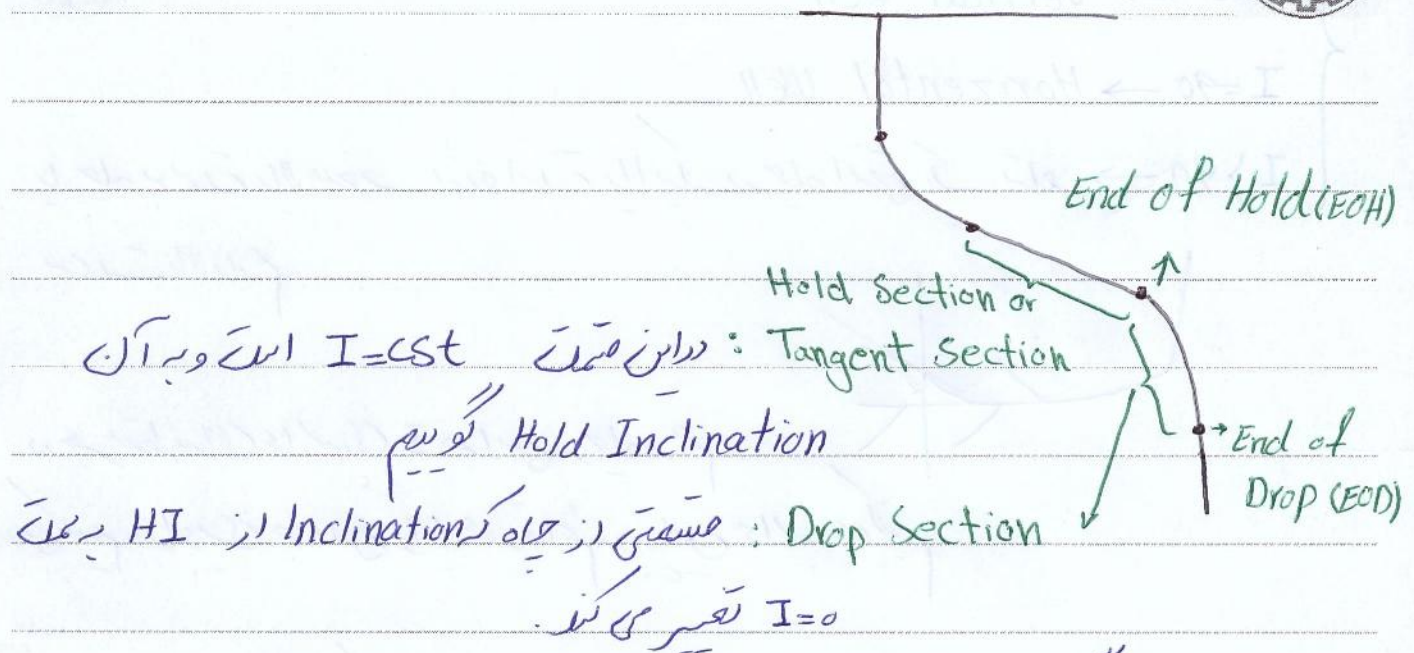 End of Hold (EOH)
Hold Section or
Tangent Section : در این قسمت I=cst است و به آن
Hold Inclination گوییم
End of
Drop (EOD)
Drop Section : قسمتی از چاه که Inclination از HI به سمت
I=0 تغییر می کند.